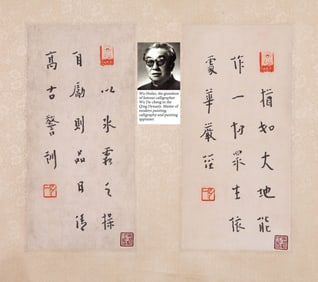 猶如大地能
作一切眾生依
處華嚴經
以冰霜之操
自勵則品日清
高古警訓
Wu Hufan, the grandson
of famous calligrapher
Wu Da-cheng in the
Qing Dynasty. Master of
modern painting,
calligraphy and painting
appraiser